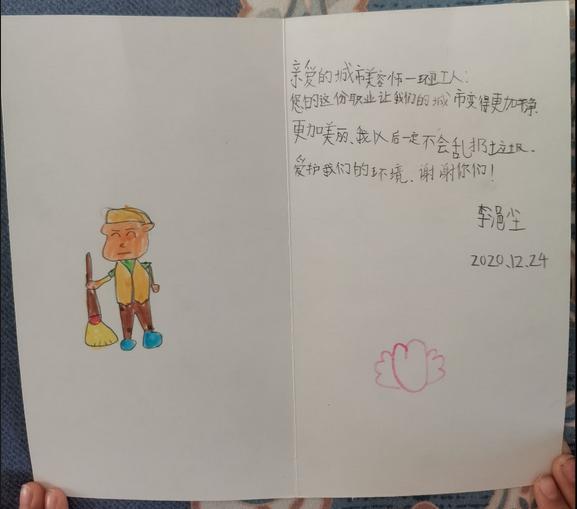 亲爱的城市美容师一环卫工人:
您的这份职业让我们的城市变得更加干净.
更加美丽、我以后一定不会乱扔垃圾.
爱护我们的环境.谢谢你们!
李浥尘
2020.12.24